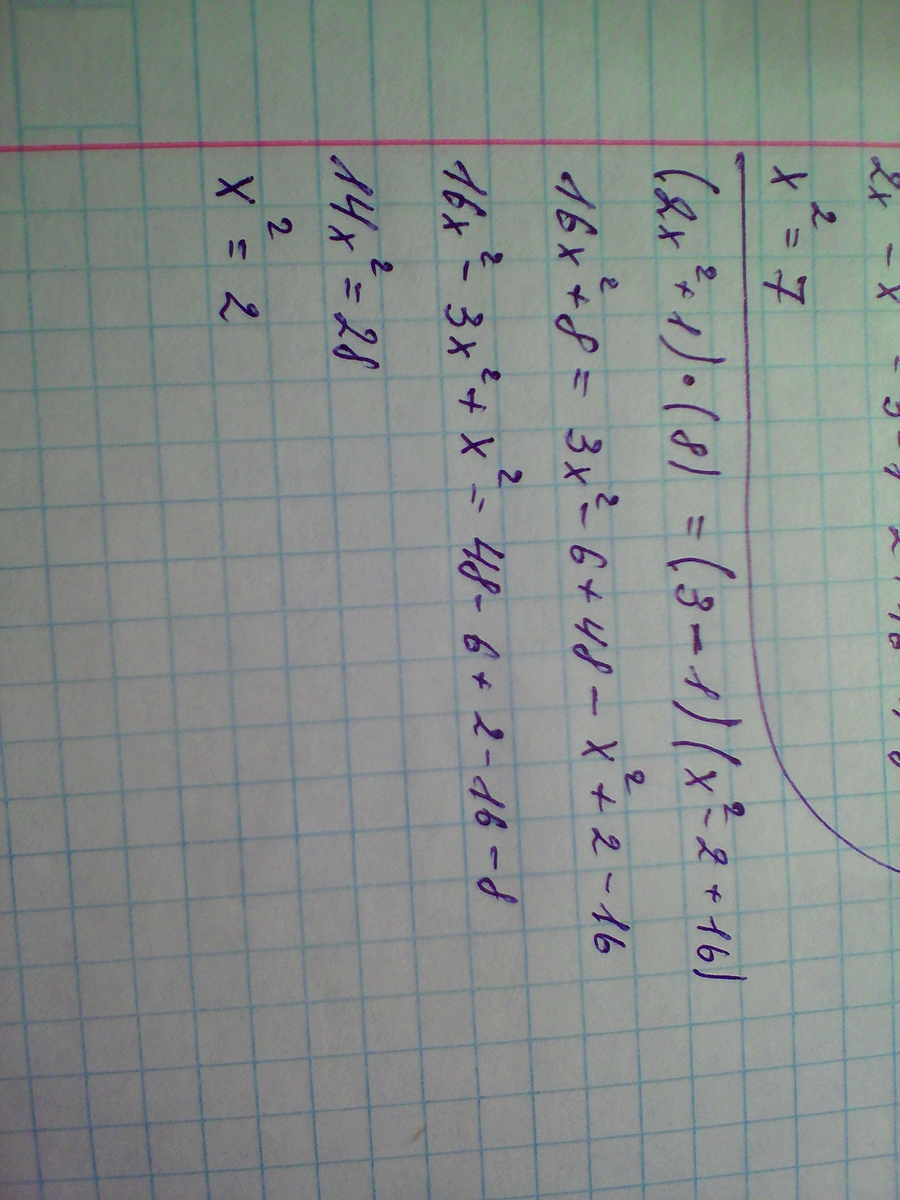 2x - x
x² = 7
(2x² + 1) · (8) = (3 - 1) (x² - 2 + 16)
16x² + 8 = 3x² - 6 + 48 - x² + 2 - 16
16x² - 3x² + x² = 48 - 6 + 2 - 16 - 8
14x² = 28
x² = 2